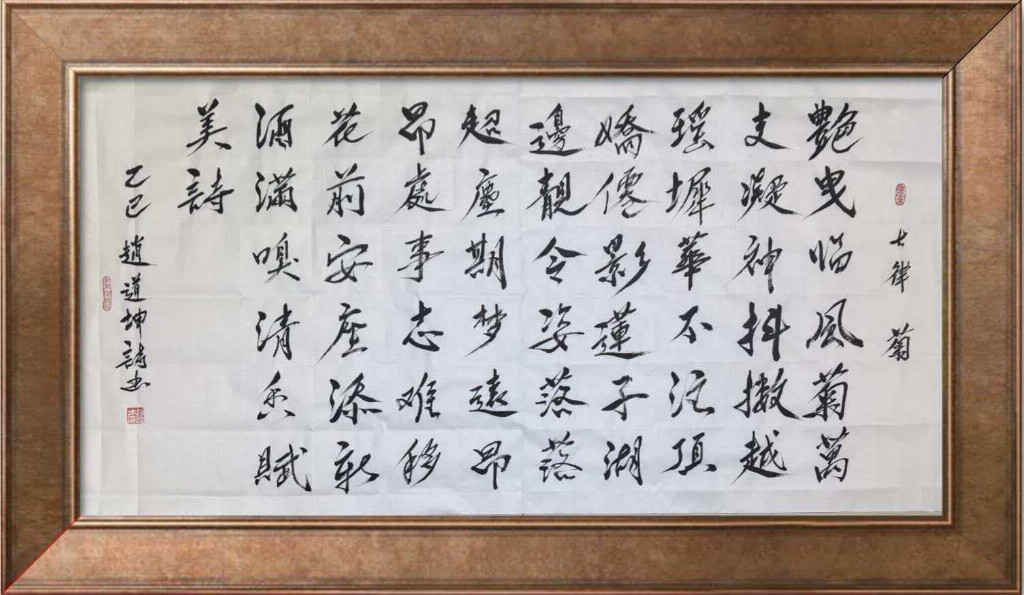 七律 菊
艷曳临風菊萬
支凝神抖擞越
瑶墀華不注頂
嬌僊影蓮子湖
邊靚令姿落落
超塵期梦遠昂
昂處事志难移
花前安座添新
酒滿嗅清香賦
美詩
乙巳 趙道坤詩书